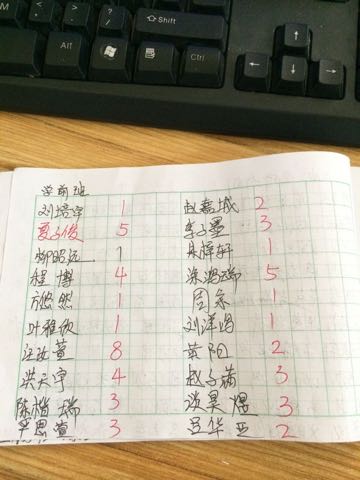 Shift
Alt
Ctrl
学前班
刘培宇 1 赵嘉城 2
夏子俊 5 李子墨 3
柳昭远 1 朱梓轩 1
程博 4 涂鸿瑞 5
方悠然 1 周末 1
叶雅欣 1 刘洋鸿 1
汪汝萱 8 黄阳 2
洪天宇 4 赵子萌 3
陈楷瑞 3 淡昊煜 3
平思萱 3 吕华亚 2